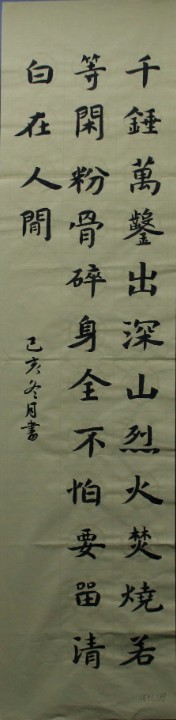 千錘萬鑿出深山烈火焚燒若
等閑粉骨碎身全不怕要留清
白在人間
己亥冬月書